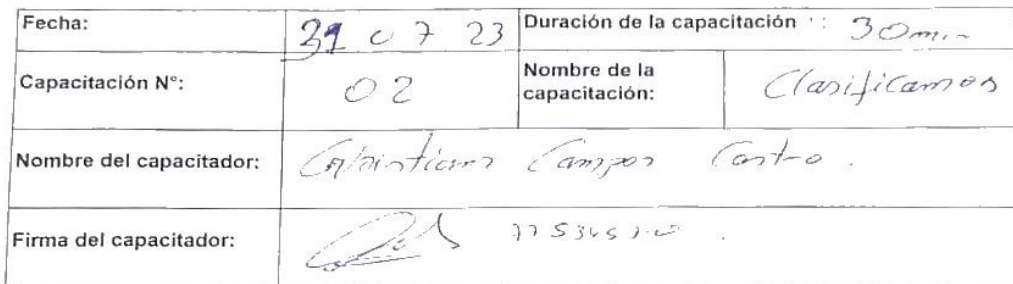 Fecha: 31 07 23 Duración de la capacitación : 30 min
Capacitación N°: 02 Nombre de la capacitación: Clasificamos
Nombre del capacitador: Campos Castro.
Firma del capacitador: